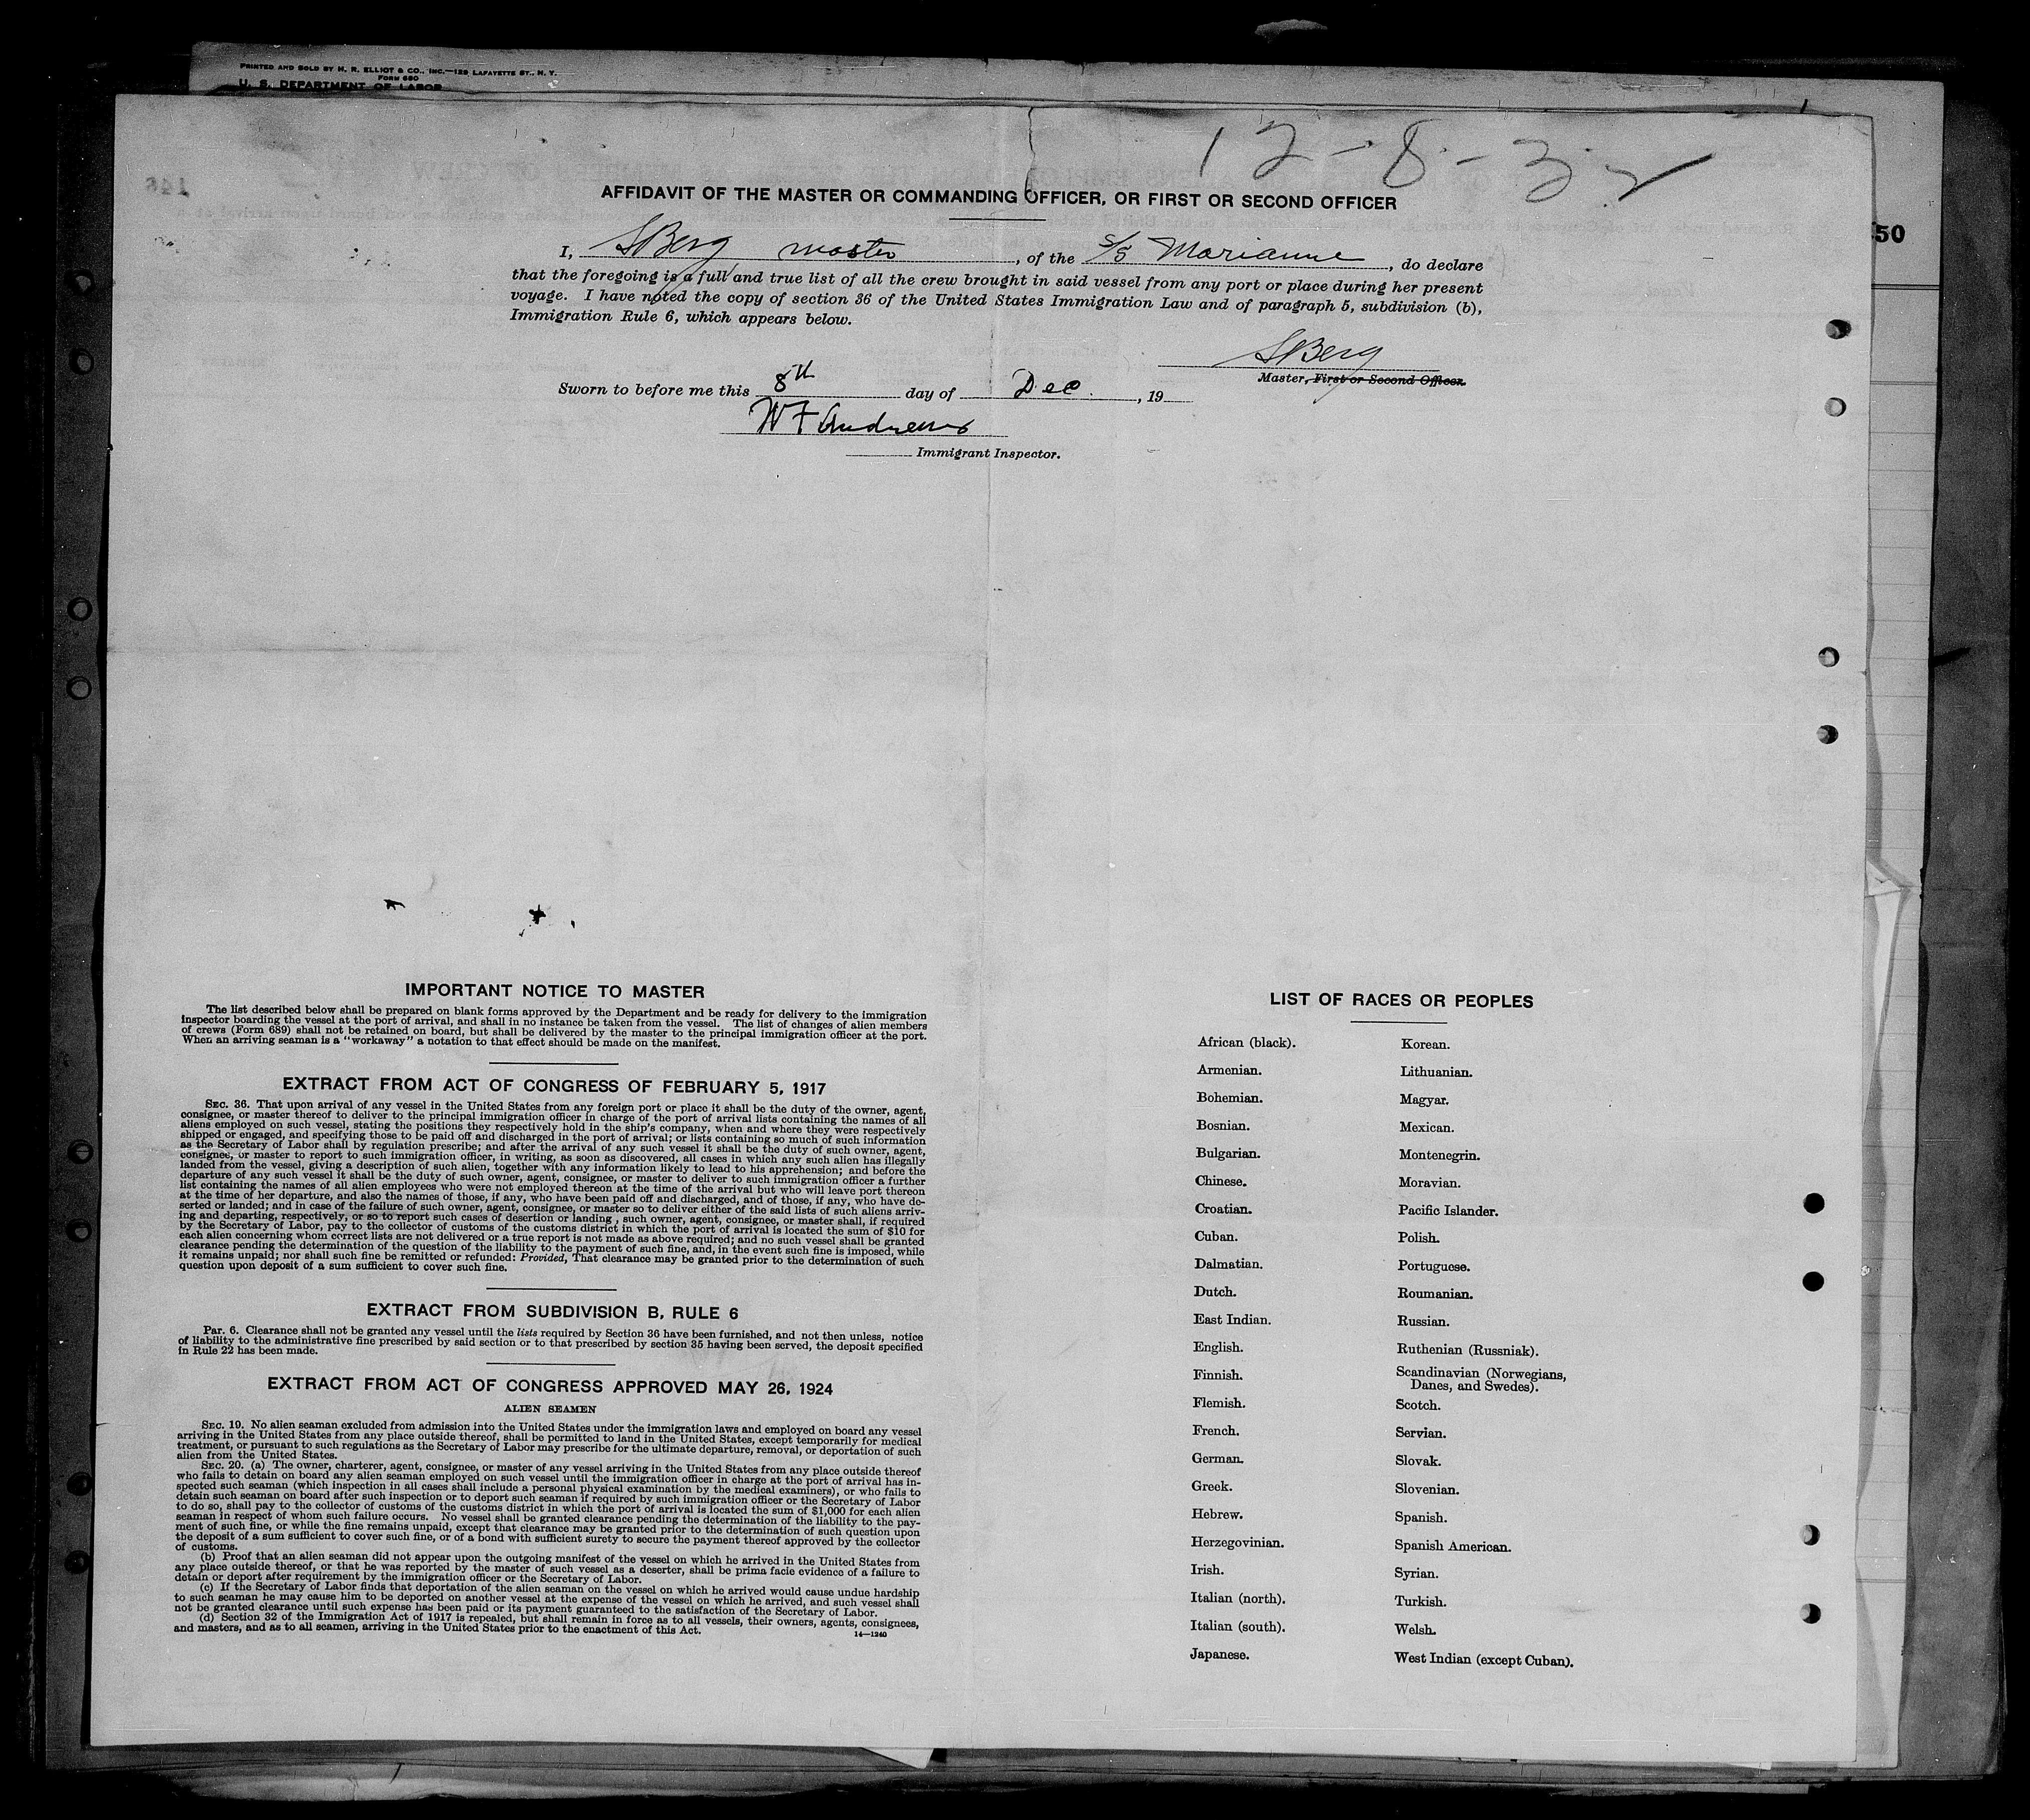 PRINTED AND SOLD BY M. R. ELLIOT & CO., INC.—129 LAFAYETTE ST., N. Y.
FORM 680
U. S. DEPARTMENT OF LABOR
12-8-32
50
AFFIDAVIT OF THE MASTER OR COMMANDING OFFICER, OR FIRST OR SECOND OFFICER
I, SBerg master, of the S/S Marianne, do declare
that the foregoing is a full and true list of all the crew brought in said vessel from any port or place during her present
voyage. I have noted the copy of section 36 of the United States Immigration Law and of paragraph 5, subdivision (b),
Immigration Rule 6, which appears below.
SBerg
Master, First or Second Officer.
Sworn to before me this 8th day of Dec., 19
W F Andrews
Immigrant Inspector.
IMPORTANT NOTICE TO MASTER
The list described below shall be prepared on blank forms approved by the Department and be ready for delivery to the immigration
inspector boarding the vessel at the port of arrival, and shall in no instance be taken from the vessel. The list of changes of alien members
of crews (Form 689) shall not be retained on board, but shall be delivered by the master to the principal immigration officer at the port.
When an arriving seaman is a "workaway" a notation to that effect should be made on the manifest.
EXTRACT FROM ACT OF CONGRESS OF FEBRUARY 5, 1917
SEC. 36. That upon arrival of any vessel in the United States from any foreign port or place it shall be the duty of the owner, agent,
consignee, or master thereof to deliver to the principal immigration officer in charge of the port of arrival lists containing the names of all
aliens employed on such vessel, stating the positions they respectively hold in the ship's company, when and where they were respectively
shipped or engaged, and specifying those to be paid off and discharged in the port of arrival; or lists containing so much of such information
as the Secretary of Labor shall by regulation prescribe; and after the arrival of any such vessel it shall be the duty of such owner, agent,
consignee, or master to report to such immigration officer, in writing, as soon as discovered, all cases in which any such alien has illegally
landed from the vessel, giving a description of such alien, together with any information likely to lead to his apprehension; and before the
departure of any such vessel it shall be the duty of such owner, agent, consignee, or master to deliver to such immigration officer a further
list containing the names of all alien employees who were not employed thereon at the time of the arrival but who will leave port thereon
at the time of her departure, and also the names of those, if any, who have been paid off and discharged, and of those, if any, who have de-
serted or landed; and in case of the failure of such owner, agent, consignee, or master so to deliver either of the said lists of such aliens arriv-
ing and departing, respectively, or so to report such cases of desertion or landing , such owner, agent, consignee, or master shall, if required
by the Secretary of Labor, pay to the collector of customs of the customs district in which the port of arrival is located the sum of $10 for
each alien concerning whom correct lists are not delivered or a true report is not made as above required; and no such vessel shall be granted
clearance pending the determination of the question of the liability to the payment of such fine, and, in the event such fine is imposed, while
it remains unpaid; nor shall such fine be remitted or refunded: Provided, That clearance may be granted prior to the determination of such
question upon deposit of a sum sufficient to cover such fine.
EXTRACT FROM SUBDIVISION B, RULE 6
Par. 6. Clearance shall not be granted any vessel until the lists required by Section 36 have been furnished, and not then unless, notice
of liability to the administrative fine prescribed by said section or to that prescribed by section 35 having been served, the deposit specified
in Rule 22 has been made.
EXTRACT FROM ACT OF CONGRESS APPROVED MAY 26, 1924
ALIEN SEAMEN
SEC. 19. No alien seaman excluded from admission into the United States under the immigration laws and employed on board any vessel
arriving in the United States from any place outside thereof, shall be permitted to land in the United States, except temporarily for medical
treatment, or pursuant to such regulations as the Secretary of Labor may prescribe for the ultimate departure, removal, or deportation of such
alien from the United States.
SEC. 20. (a) The owner, charterer, agent, consignee, or master of any vessel arriving in the United States from any place outside thereof
who fails to detain on board any alien seaman employed on such vessel until the immigration officer in charge at the port of arrival has in-
spected such seaman (which inspection in all cases shall include a personal physical examination by the medical examiners), or who fails to
detain such seaman on board after such inspection or to deport such seaman if required by such immigration officer or the Secretary of Labor
to do so, shall pay to the collector of customs of the customs district in which the port of arrival is located the sum of $1,000 for each alien
seaman in respect of whom such failure occurs. No vessel shall be granted clearance pending the determination of the liability to the pay-
ment of such fine, or while the fine remains unpaid, except that clearance may be granted prior to the determination of such question upon
the deposit of a sum sufficient to cover such fine, or of a bond with sufficient surety to secure the payment thereof approved by the collector
of customs.
(b) Proof that an alien seaman did not appear upon the outgoing manifest of the vessel on which he arrived in the United States from
any place outside thereof, or that he was reported by the master of such vessel as a deserter, shall be prima facie evidence of a failure to
detain or deport after requirement by the immigration officer or the Secretary of Labor.
(c) If the Secretary of Labor finds that deportation of the alien seaman on the vessel on which he arrived would cause undue hardship
to such seaman he may cause him to be deported on another vessel at the expense of the vessel on which he arrived, and such vessel shall
not be granted clearance until such expense has been paid or its payment guaranteed to the satisfaction of the Secretary of Labor.
(d) Section 32 of the Immigration Act of 1917 is repealed, but shall remain in force as to all vessels, their owners, agents, consignees,
and masters, and as to all seamen, arriving in the United States prior to the enactment of this Act.
14—1240
LIST OF RACES OR PEOPLES
African (black).
Armenian.
Bohemian.
Bosnian.
Bulgarian.
Chinese.
Croatian.
Cuban.
Dalmatian.
Dutch.
East Indian.
English.
Finnish.
Flemish.
French.
German.
Greek.
Hebrew.
Herzegovinian.
Irish.
Italian (north).
Italian (south).
Japanese.
Korean.
Lithuanian.
Magyar.
Mexican.
Montenegrin.
Moravian.
Pacific Islander.
Polish.
Portuguese.
Roumanian.
Russian.
Ruthenian (Russniak).
Scandinavian (Norwegians,
Danes, and Swedes).
Scotch.
Servian.
Slovak.
Slovenian.
Spanish.
Spanish American.
Syrian.
Turkish.
Welsh.
West Indian (except Cuban).